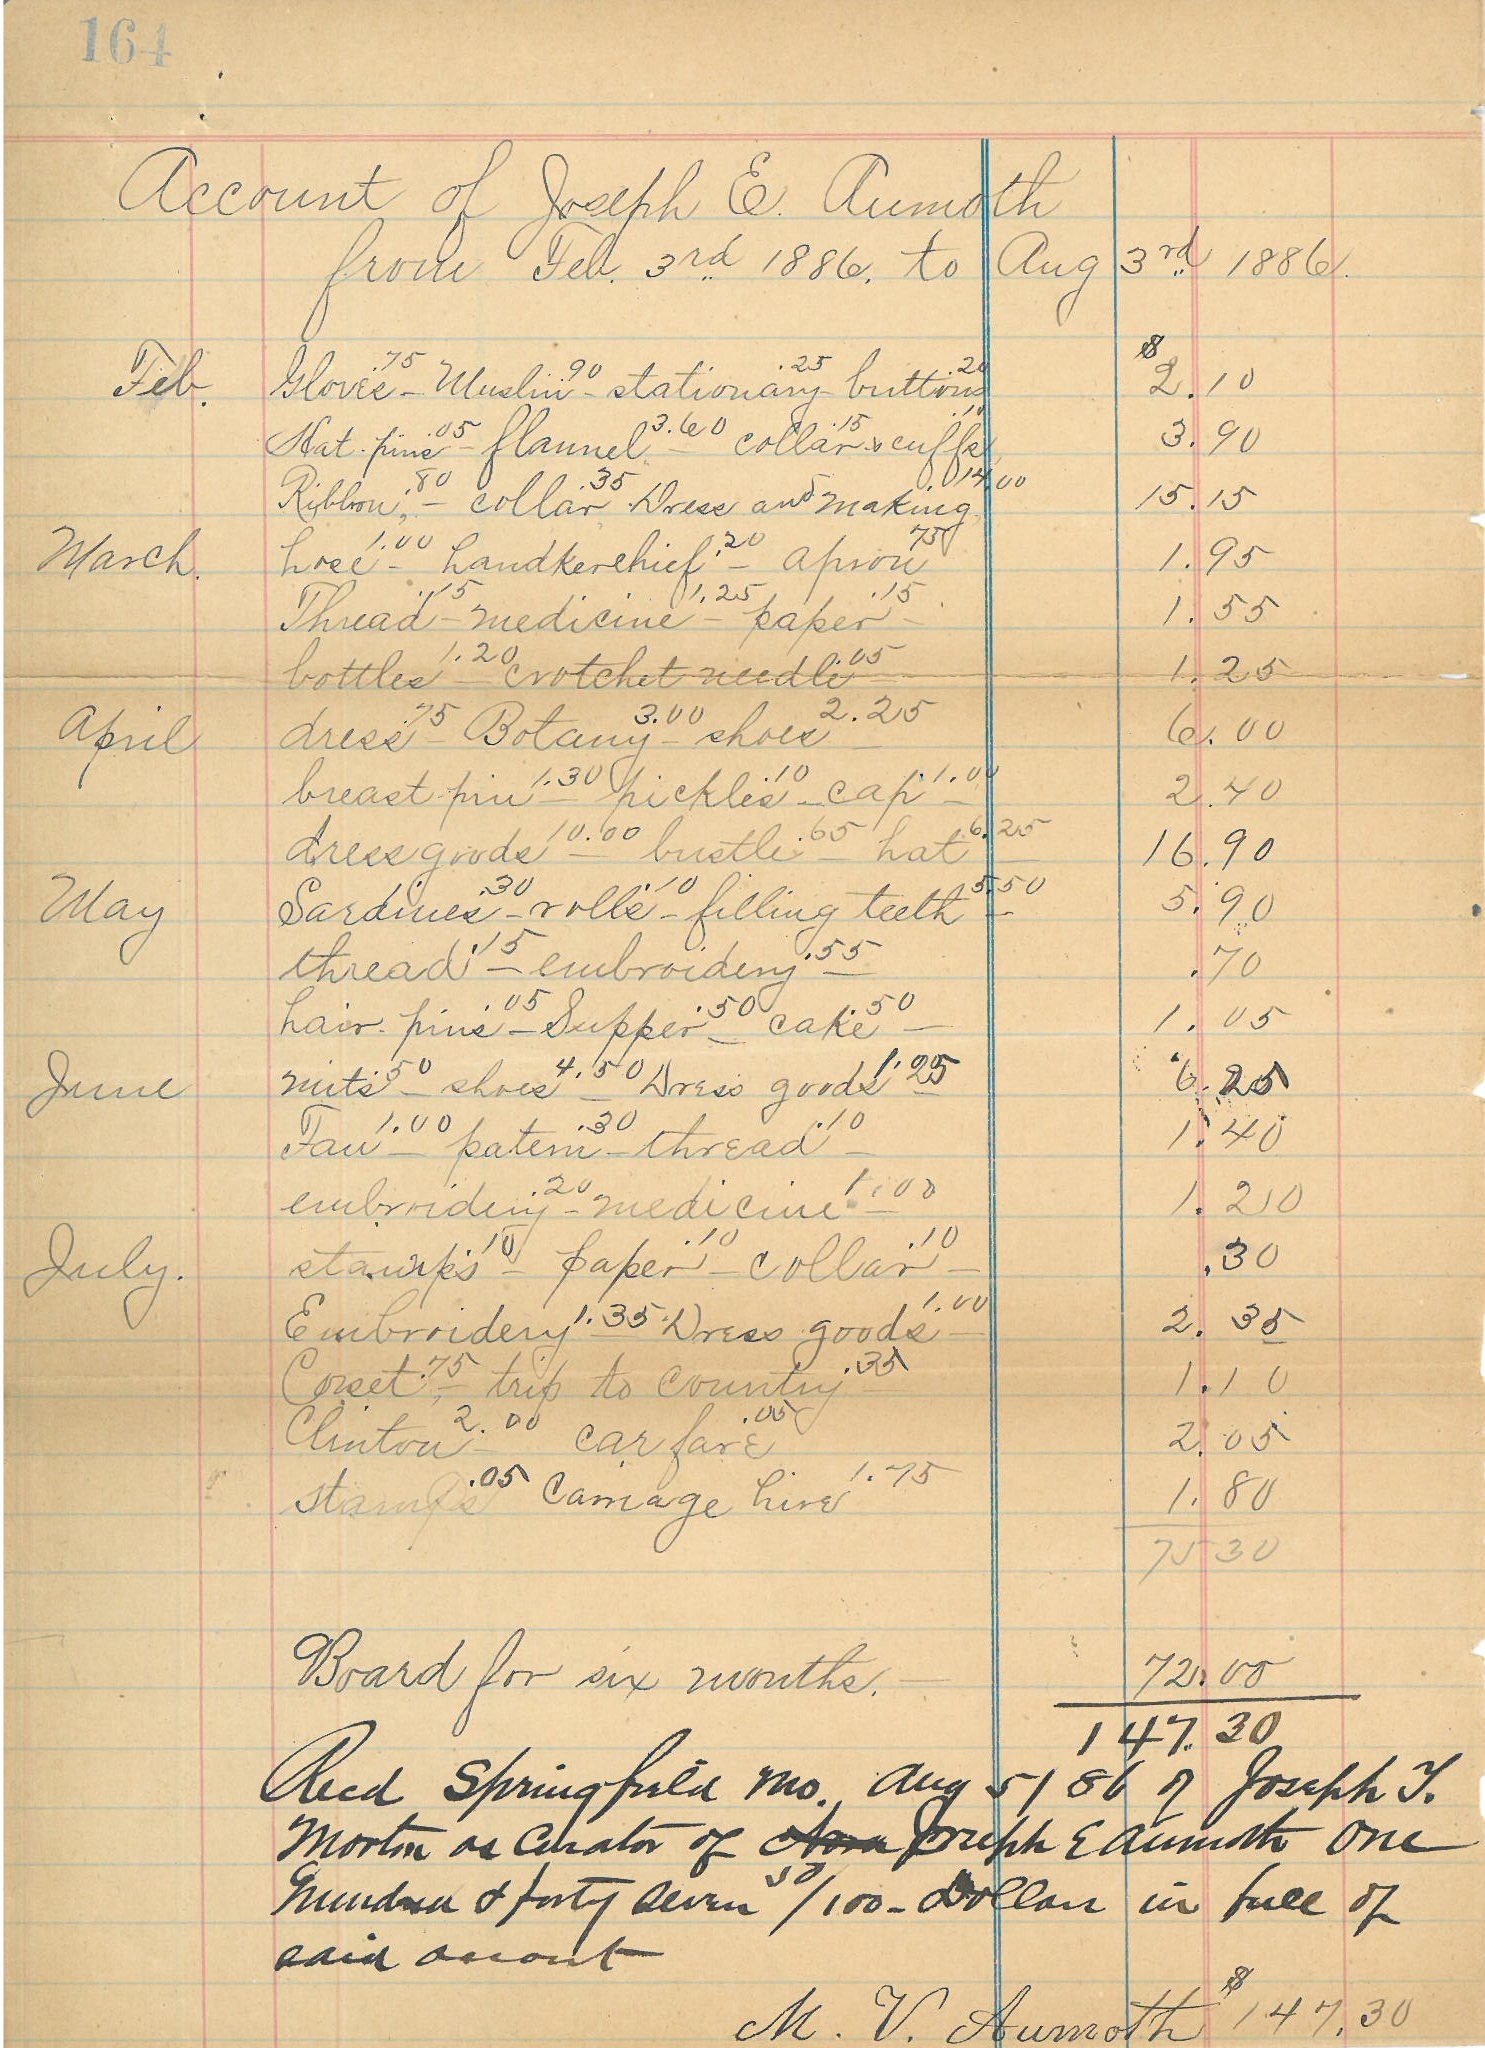 164
Account of Joseph E. Aumoth
from Feb. 3rd 1886. to Aug 3rd 1886.
Feb. Gloves .75 – Muslin .90 – stationary .25 – buttons .20 $2.10
Hat pins .05 – flannel 3.60 – collar .15 & cuffs .10 3.90
Ribbon, .80 – collar .35 Dress and making 14.00 15.15
March. hose 1.00 – handkerchief .20 – apron .75 1.95
Thread .15 – medicine 1.25 – paper .15 – 1.55
bottles 1.20 – crotchet needle .05 1.25
April dress .75 – Botany 3.00 – shoes 2.25 – 6.00
breast pin 1.30 – pickles .10 – cap 1.00 – 2.40
dress goods 10.00 – bustle .65 – hat 6.25 – 16.90
May Sardines .30 – rolls .10 – filling teeth 5.50 – 5.90
thread .15 – embroidery .55 – .70
hair pins .05 – Supper .50 – cake .50 – 1.05
June mits .50 – shoes 4.50 – Dress goods 1.25 – 6.25
Fan 1.00 – patern .30 – thread .10 – 1.40
embroidery .20 – medicine 1.00 – 1.20
July. stamps .10 – paper .10 – collar .10 – .30
Embroidery 1.35 – Dress goods 1.00 – 2.35
Corset, .75 – trip to country .35 – 1.10
Clinton 2.00 – car fare .05 2.05
stamps .05 Carriage hire 1.75 1.80
75 30
Board for six months. – 72.00
147.30
Recd Springfield Mo. Aug 5/86 of Joseph T.
Morton as Curator of Joseph E Aumoth One
Hundred & forty seven 30/100 – Dollars in full of
said acount
M. V. Aumoth $147.30